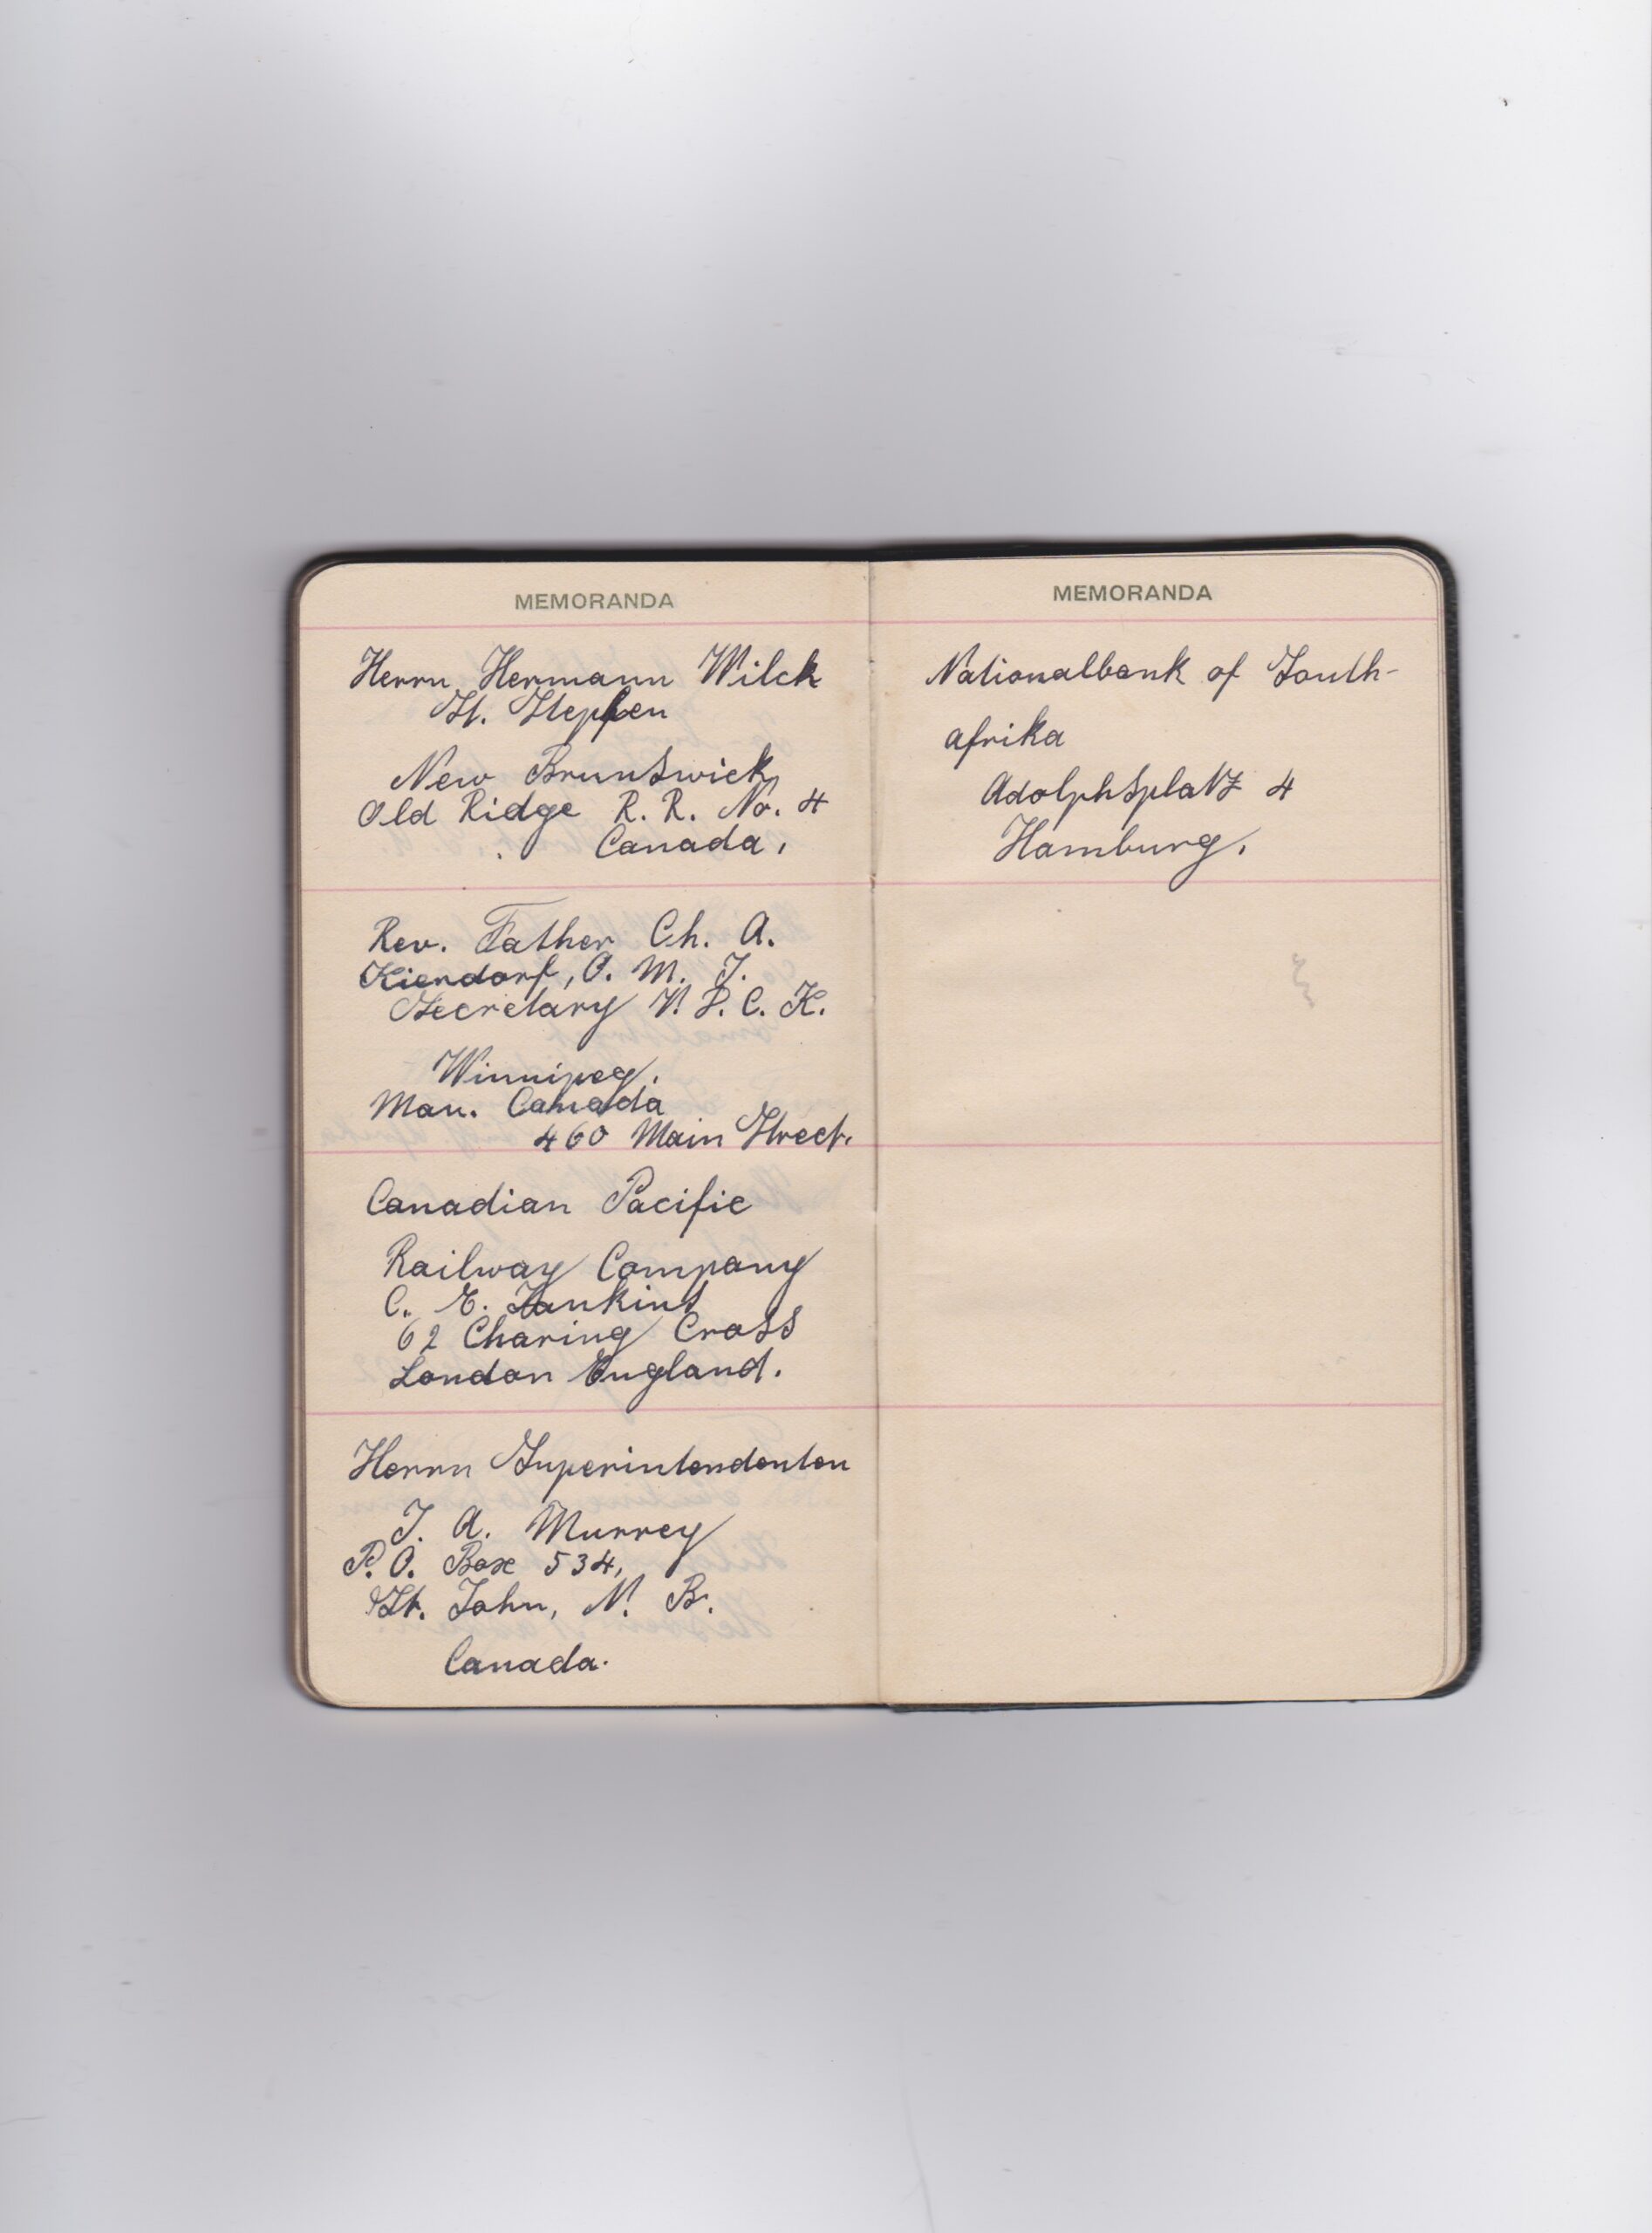 MEMORANDA
Herrn Hermann Wilck
St. Stepfen
New Brunswick
Old Ridge R. R. No. 4
Canada,
Rev. Father Ch. A.
Kierdorf, O. M. J.
Secretary V. D. C. K.
Winnipeg.
Man. Canada
460 Main Street.
Canadian Pacific
Railway Company
C. E. Jenkins
62 Charing Cross
London England.
Herrn Superintendenten
J. A. Murrey
P. O. Box 534,
St. John, N. B.
Canada.
MEMORANDA
Nationalbank of South-
afrika
Adolphsplatz 4
Hamburg.